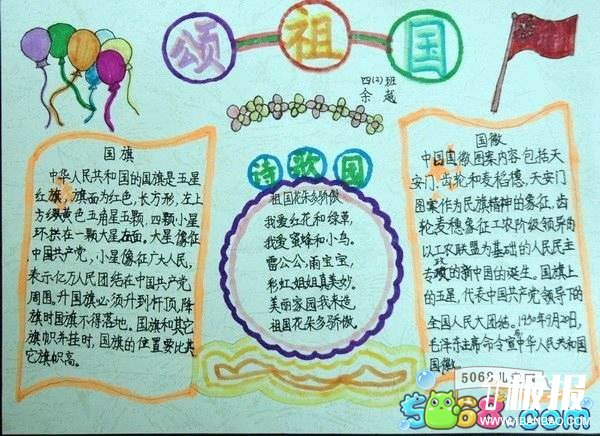 颂祖国
四(2)班
余越
国旗
中华人民共和国的国旗是五星
红旗,旗面为红色,长方形,左上
方缀黄色五角星五颗,四颗小星
环拱在一颗大星左面。大星像征
中国共产党,小星像征广大人民,
表示亿万人民团结在中国共产党
周围。升国旗必须升到杆顶,降
旗时国旗不得落地。国旗和其它
旗帜并挂时,国旗的位置要比其
它旗帜高。
诗歌园
祖国花朵多骄傲
我爱红花和绿草,
我爱蜜蜂和小鸟。
雷公公,雨宝宝,
彩虹姐姐真美妙。
美丽家园我来造,
祖国花朵多骄傲。
国徽
中国国徽图案内容包括天
安门、齿轮和麦稻穗,天安门
图案作为民族精神的象征,齿
轮麦穗象征工农阶级领导的
以工农联盟为基础的人民民主
专政的新中国的诞生。国旗上
的五星,代表中国共产党领导下的
全国人民大团结。1950年9月20日,
毛泽东主席命令宣布中华人民共和国
国徽。
5068儿
板报
5068.com
WWW.1BANBAO.COM